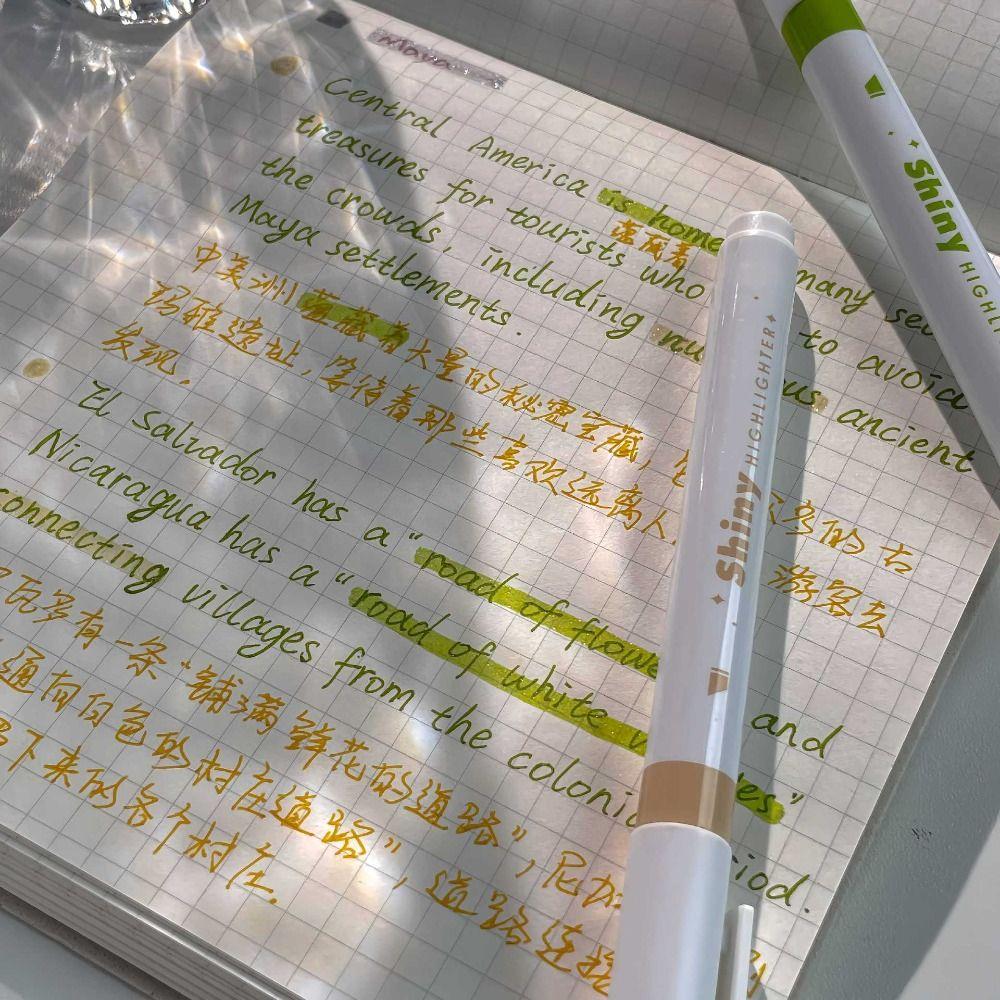 Maya
Central America is home many
treasures for tourists who to avoid
the crowds, including ancient
Maya settlements.
蕴藏着
中美洲蕴藏着大量的秘密宝藏,
玛雅遗址,等待着那些喜欢远离人 游客去
发现.
El Salvador has a "road of and
Nicaragua has a "road of white
connecting villages from the
瓦多有一条"铺满鲜花的道路",尼加
通向白色的村庄道路",道路连接
下来的各个村庄.
Shiny HIGHLIGHTER
Shiny